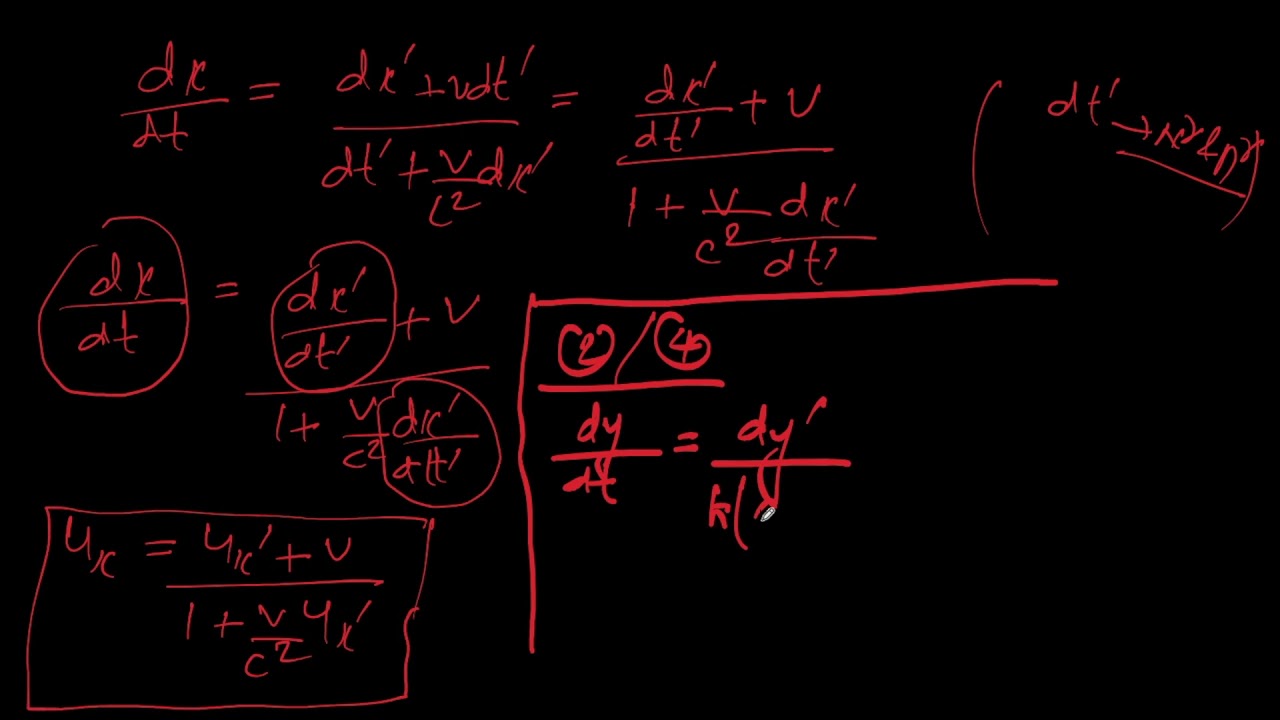 dx/dt = (dx′ + vdt′)/(dt′ + v/c² dx′) = (dx′/dt′ + v)/(1 + v/c² dx′/dt′)
( dt′ → )
dx/dt = (dx′/dt′ + v)/(1 + v/c² dx′/dt′)
u_x = (u_x′ + v)/(1 + v/c² u_x′)
② / ④
dy/dt = dy′/k(